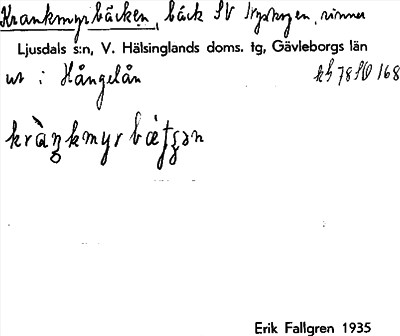 Krankmyrbäcken, bäck SV, rinner
Ljusdals s:n, V. Hälsinglands doms. tg, Gävleborgs län
ut i Hångelån
78 SV 168
Erik Fallgren 1935